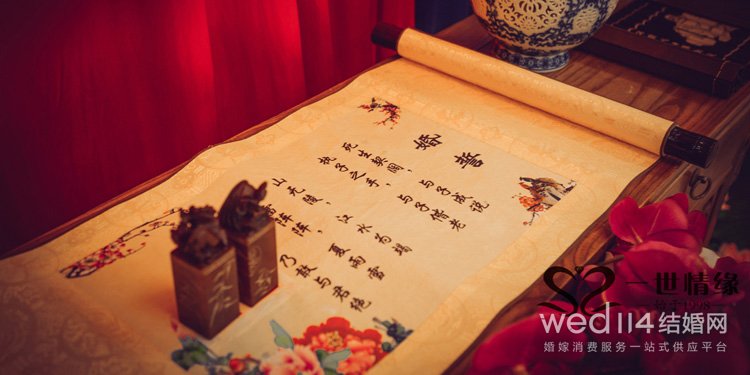 婚誓
死生契阔，与子成说
执子之手，与子偕老
山无陵，江水为竭
雷阵阵，夏雨雪
乃敢与君绝
一世情缘
wed114结婚网
婚嫁消费服务一站式供应平台